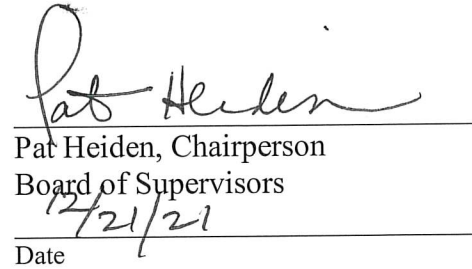 Pat Heiden
Pat Heiden, Chairperson
Board of Supervisors
12/21/21
Date